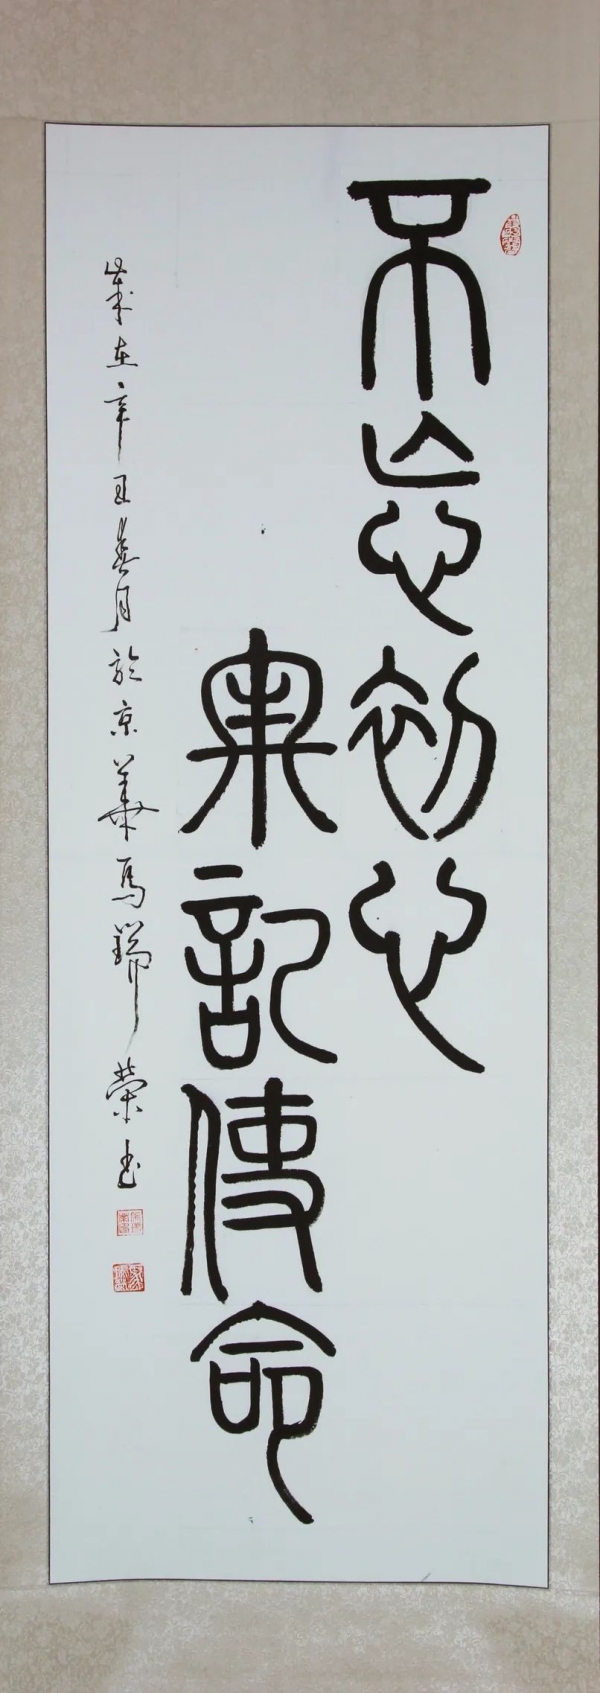 不忘初心
牢記使命
歲在辛丑月於京華馬榮書